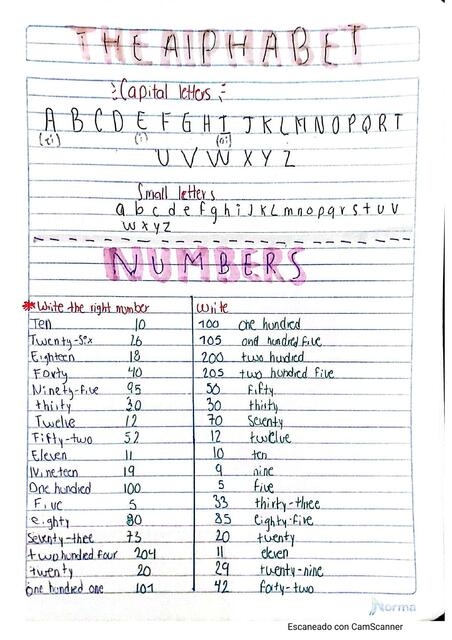 THE AlPHABET
Capital letters
A B C D E F G H I J K L M N O P Q R T
(ei) (i) (ai)
U V W X Y Z
Small letters
a b c d e f g h i J K L m n o p q r s t u v
w x y z
NUMBERS
*Write the right number
Ten 10
Twenty-six 26
Eighteen 18
Forty 40
Ninety-five 95
thirty 30
Twelve 12
Fifty-two 52
Eleven 11
Nineteen 19
One hundred 100
Five 5
eighty 80
Seventy-thee 73
two hundred four 204
twenty 20
one hundred one 101
write
100 one hundred
105 and hundred five
200 two hundred
205 two hundred five
50 fifty
30 thirty
70 Seventy
12 twelve
10 ten
9 nine
5 five
33 thirty-three
85 eighty-five
20 twenty
11 eleven
29 twenty-nine
42 forty-two
Norma
Escaneado con CamScanner